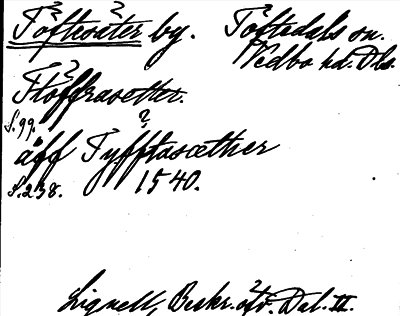 Töftesäter by. Töftedals sn.
Vedbo hd. Dls.
Töffrasetter.
S. 99.
äff Tyfftasætther
S. 238. 1540.
Lignell, Beskr. öfv. Dal. II.